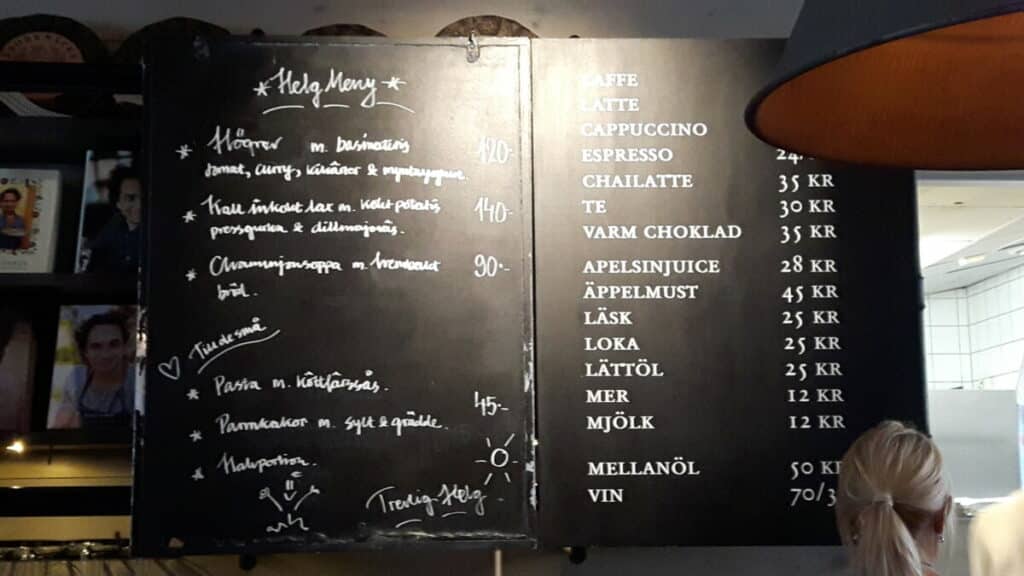 * Helg Meny *
* Högrev m. basmatiris 120:-
tomat, curry, & myntayoghurt.
* Kall inkokt lax m. kokt potatis 140:-
pressgurka & dillmajonäs.
* Champinjonsoppa m. hembakat 90:-
bröd.
Till de små
* Pasta m. köttfärssås.
45:-
* Pannkakor m. sylt & grädde.
* Halvportion.
Trevlig Helg
KAFFE
LATTE
CAPPUCCINO
ESPRESSO 24
CHAILATTE 35 KR
TE 30 KR
VARM CHOKLAD 35 KR
APELSINJUICE 28 KR
ÄPPELMUST 45 KR
LÄSK 25 KR
LOKA 25 KR
LÄTTÖL 25 KR
MER 12 KR
MJÖLK 12 KR
MELLANÖL 50 KR
VIN 70/3